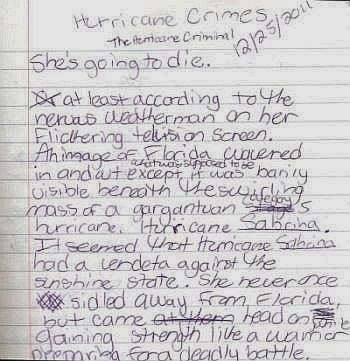 Hurricane Crimes
12/25/2011
The Hurricane Criminal
She's going to die.
Or at least according to the
nervus weatherman on her
Flickering telivision screen.
An image of Florida wavered
what was supposed to be
in and out except it was barily
visible beneath the swirling
mass of a gargantuan category 5
hurricane. Hurricane Sabrina.
It seemed that Hurricane Sabrina
had a vendeta against the
sunshine state. She never once
sidled away from Florida,
but came at them head on while
gaining strength like a warrior
preparing for a deadly battle.